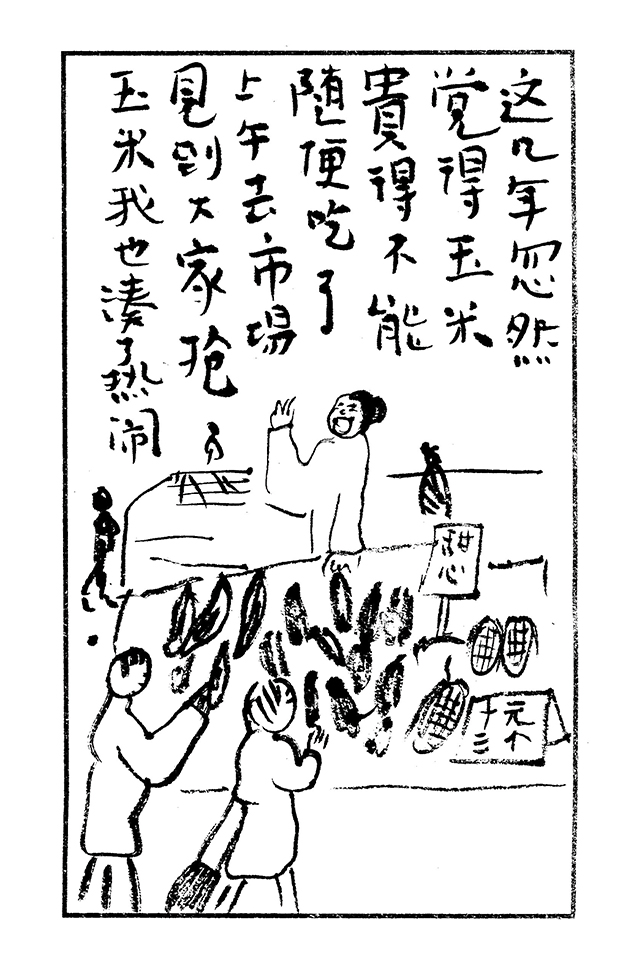 这几年忽然
觉得玉米
貴得不能
随便吃了
上午去市場
見到大家抢
玉米我也湊了热闹
甜心
元个
十三